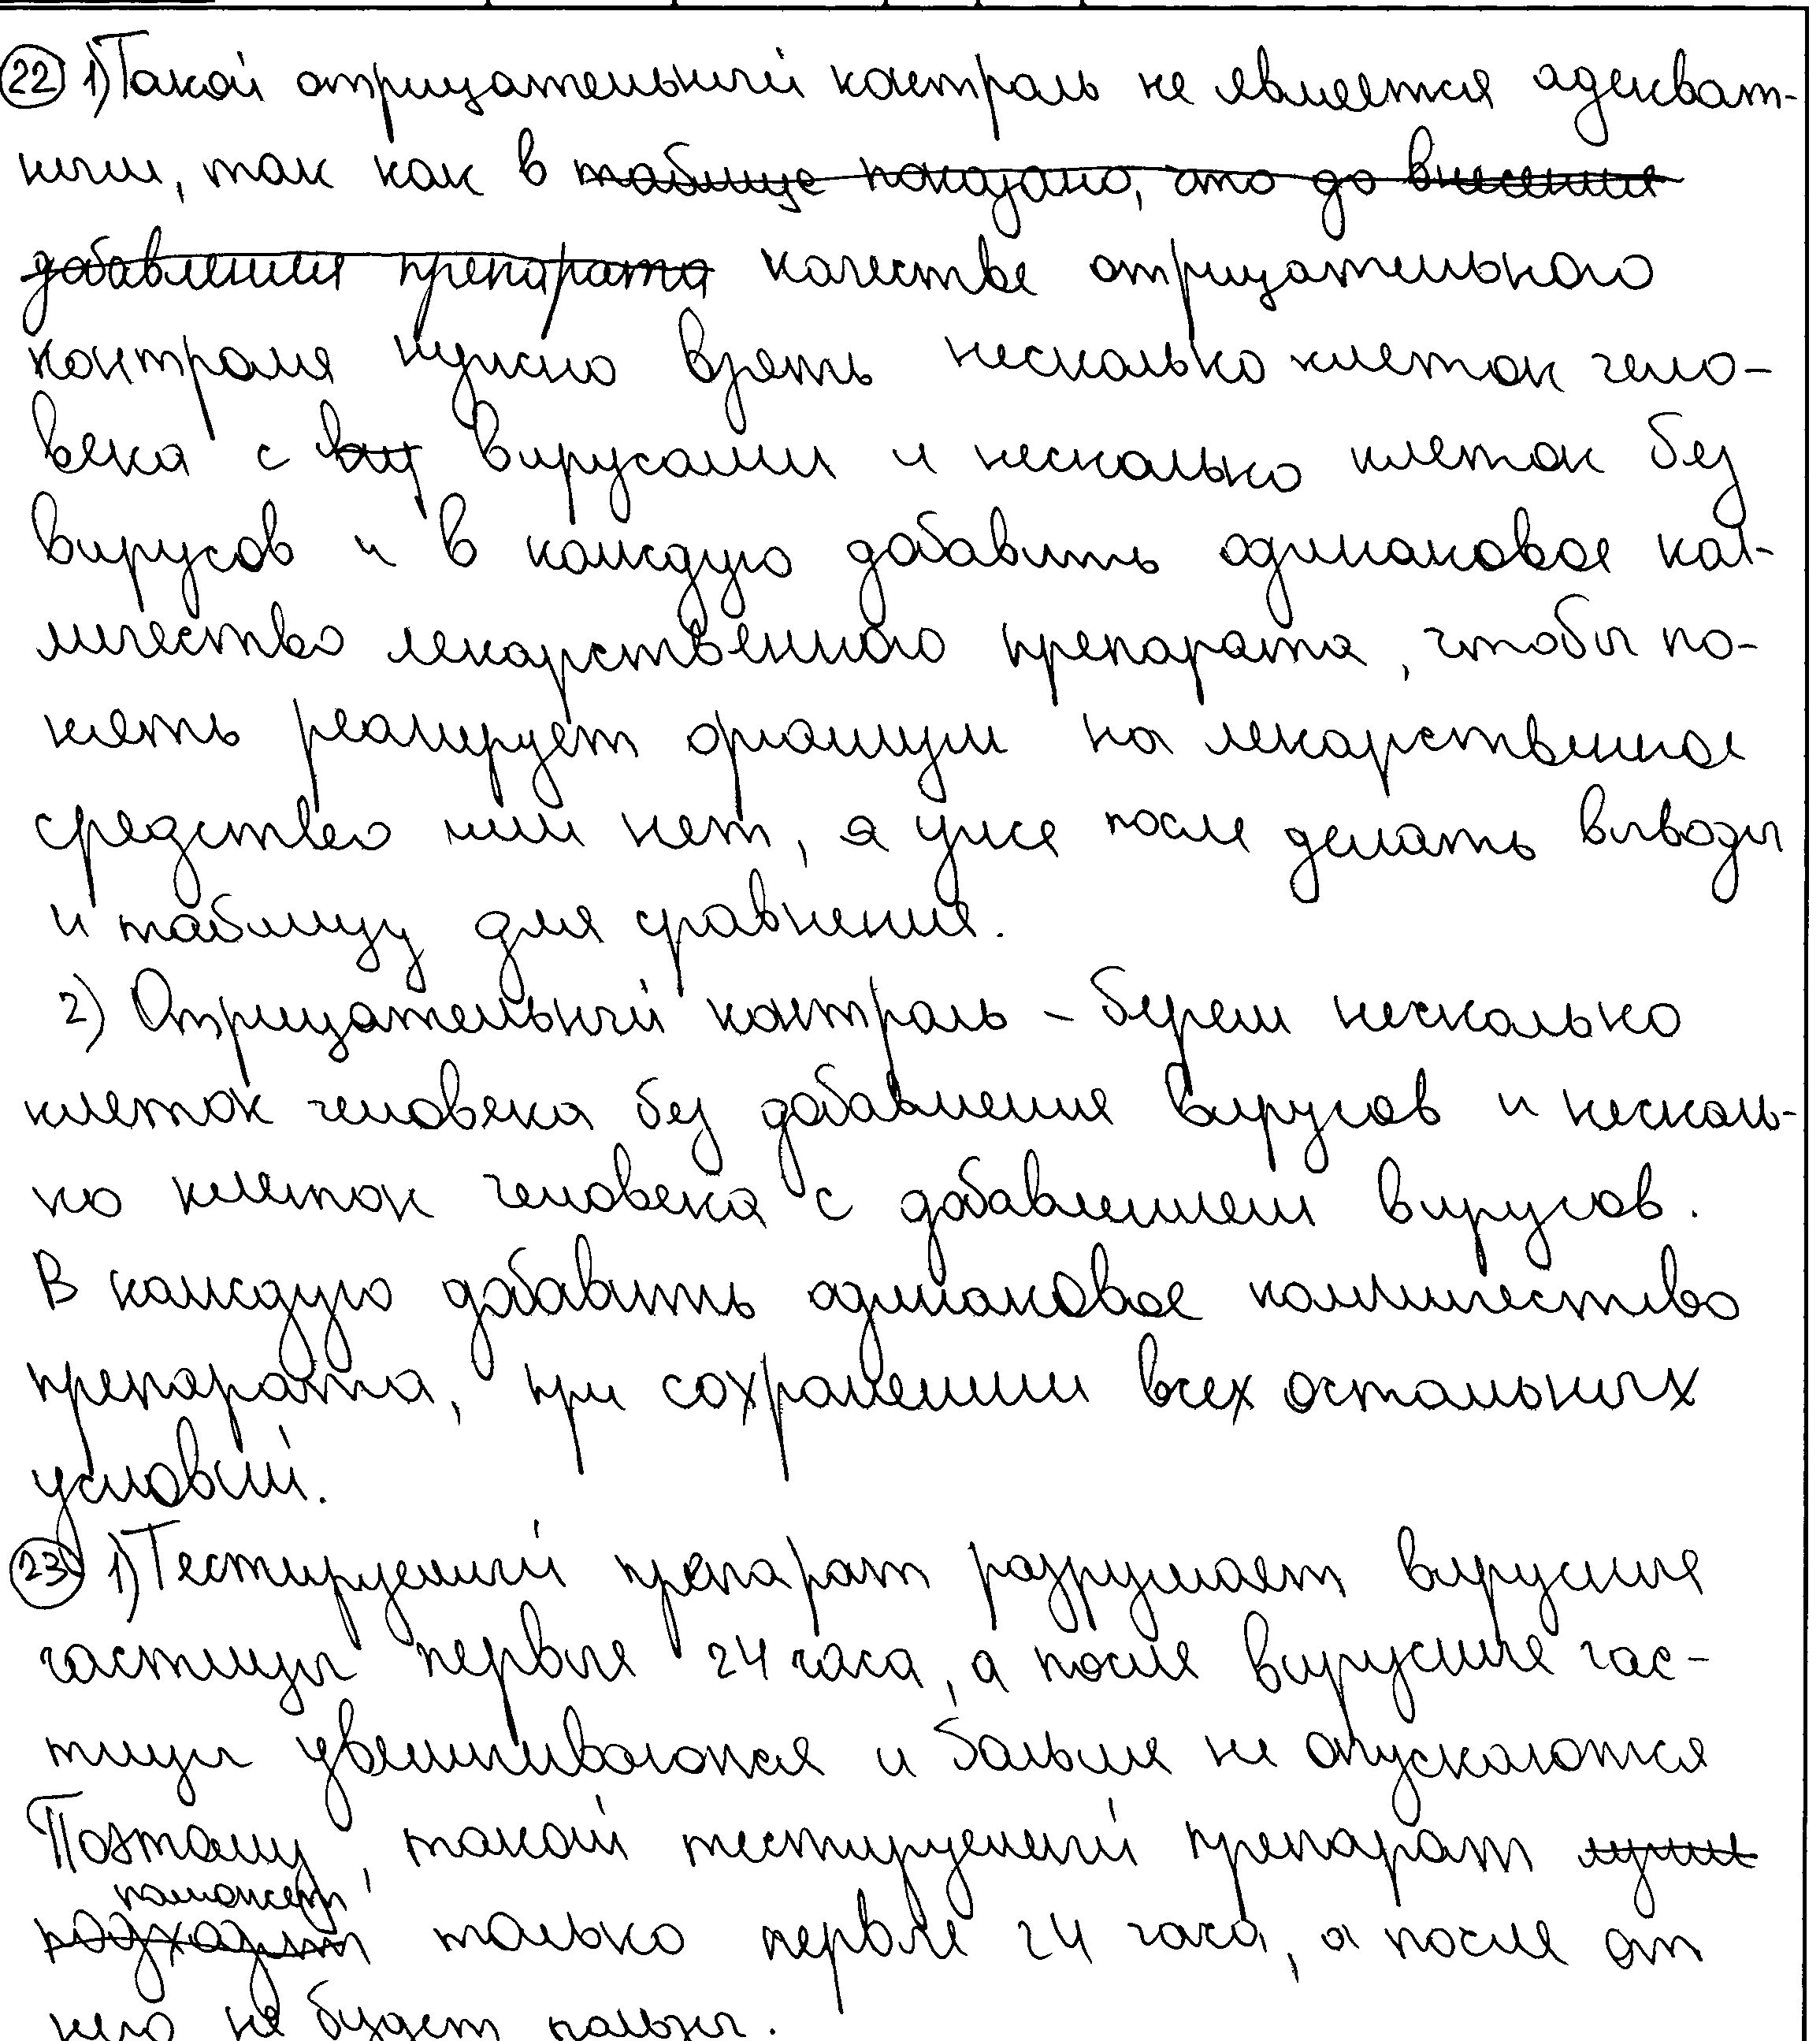 22 1) Такой отрицательный контроль не является адекват-
ным, так как в таблице показано, что до внесения
добавления препарата качестве отрицательного
контроля нужно взять несколько клеток чело-
века с вир вирусами и несколько клеток без
вирусов и в каждую добавить одинаковое кол-
личество лекарственного препарата, чтобы по-
нять реагирует организм на лекарственное
средство или нет, а уже после делать выводы
и таблицу для сравнения.
2) Отрицательный контроль - берем несколько
клеток человека без добавления вирусов и несколь-
ко клеток человека с добавлением вирусов.
В каждую добавить одинаковое колличество
препарата, при сохранении всех остальных
условий.
23 1) Тестируемый препарат разрушает вирусные
частицы первые 24 часа, а после вирусные час-
тицы увеличиваются и больше не опускаются
Поэтому, такой тестируемый препарат
поможет
подходит только первые 24 часа, а после от
него не будет пользы.